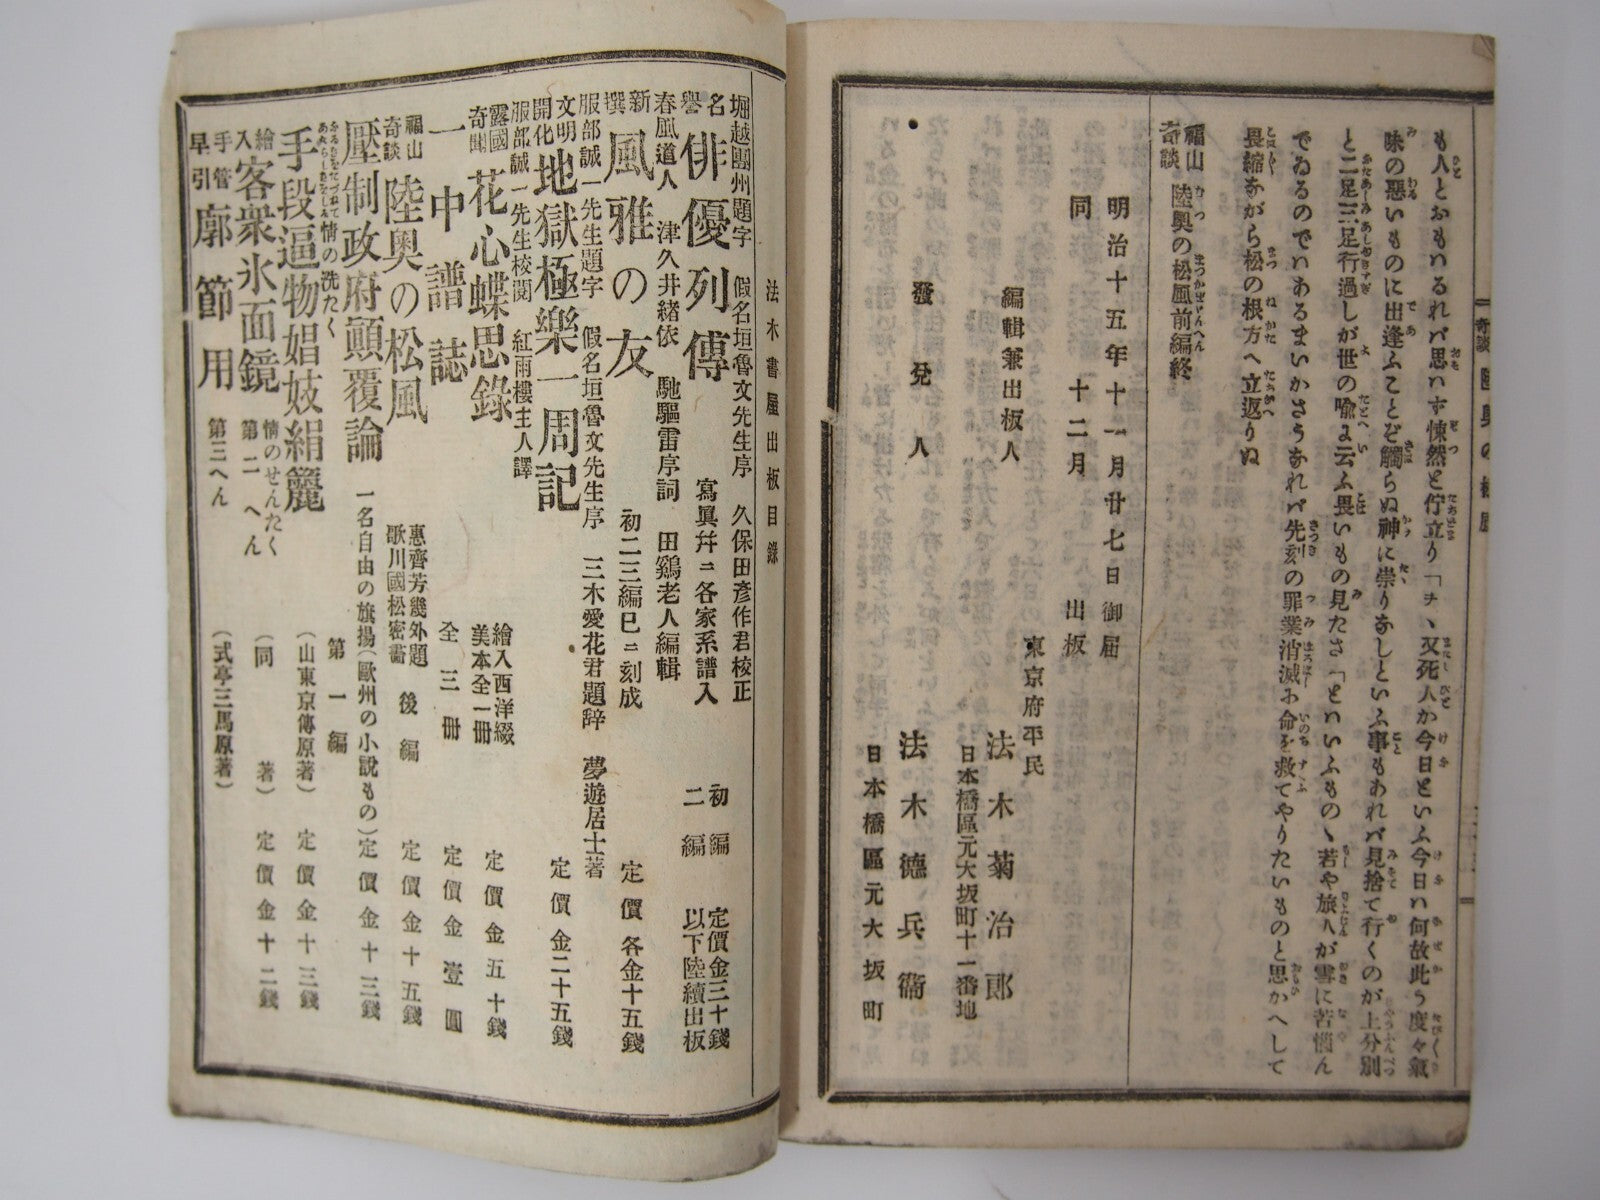 も人とおもいるれバ思いず悚然と佇立り「ヲヽ又死人か今日といふ今日ハ何故此う度々氣
味の惡いものに出逢ふことぞ觸らぬ神に崇りなしといふ事もあれバ見捨て行くのが上分別
と二足三足行過しが世の喩よ云ふ畏いもの見たさ「といいふものヽ若や旅人が雪に苦惱ん
でゐるのでハあるまいかさうなれバ先刻の罪業消滅お命を救てやりたいものと思かへして
畏縮ながら松の根方へ立返りぬ
福山奇談 陸奥の松風前編終
明治十五年十一月廿七日御届
同 十二月 出板
東京府平民
編輯兼出板人 法木菊治郎
日本橋區元大坂町十一番地
發兌人 法木德兵衞
日本橋區元大坂町
法木書屋出板目錄
堀越團州題字 假名垣魯文先生序 久保田彦作君校正
名譽 俳優列傳 寫眞幷ニ各家系譜入 初編 二編 定價金三十錢 以下陸續出板
春風道人 津久井緒依 馳驅雷序詞 田鷄老人編輯
新撰 風雅の友 初二三編巳ニ刻成 定價各金十五錢
服部誠一先生題字 假名垣魯文先生序 三木愛花君題辞 夢遊居士著
文明開化 地獄極樂一周記 定價金二十五錢
服部誠一先生校閲 紅雨樓主人譯
露國奇聞 花心蝶思錄 繪入西洋綴 美本全一册 定價金五十錢
一中譜誌 全三册 定價金壹圓
福山奇談 陸奥の松風 惠齊芳幾外題 歌川國松密畵 後編 定價金十五錢
壓制政府顛覆論 一名自由の旗揚(歐州の小說もの) 定價金十三錢
情の洗たく 第一編
手段逼物娼妓絹籭 (山東京傳原著) 定價金十三錢
繪入 客衆氷面鏡 情のせんたく 第二へん (同 著) 定價金十二錢
手管早引 廓節用 第三へん (式亭三馬原著)